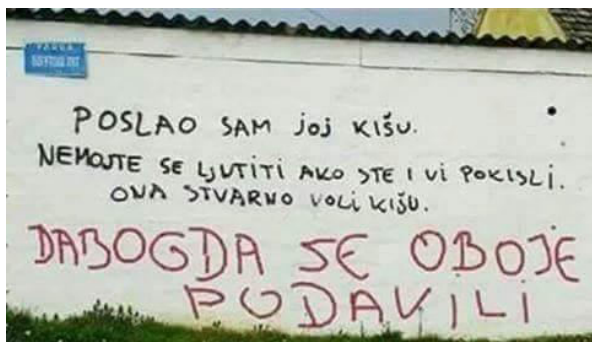 POSLAO SAM JOJ KIŠU.
NEMOJTE SE LJUTITI AKO STE I VI POKISLI.
ONA STVARNO VOLI KIŠU.
DABOGDA SE OBOJE
PODAVILI